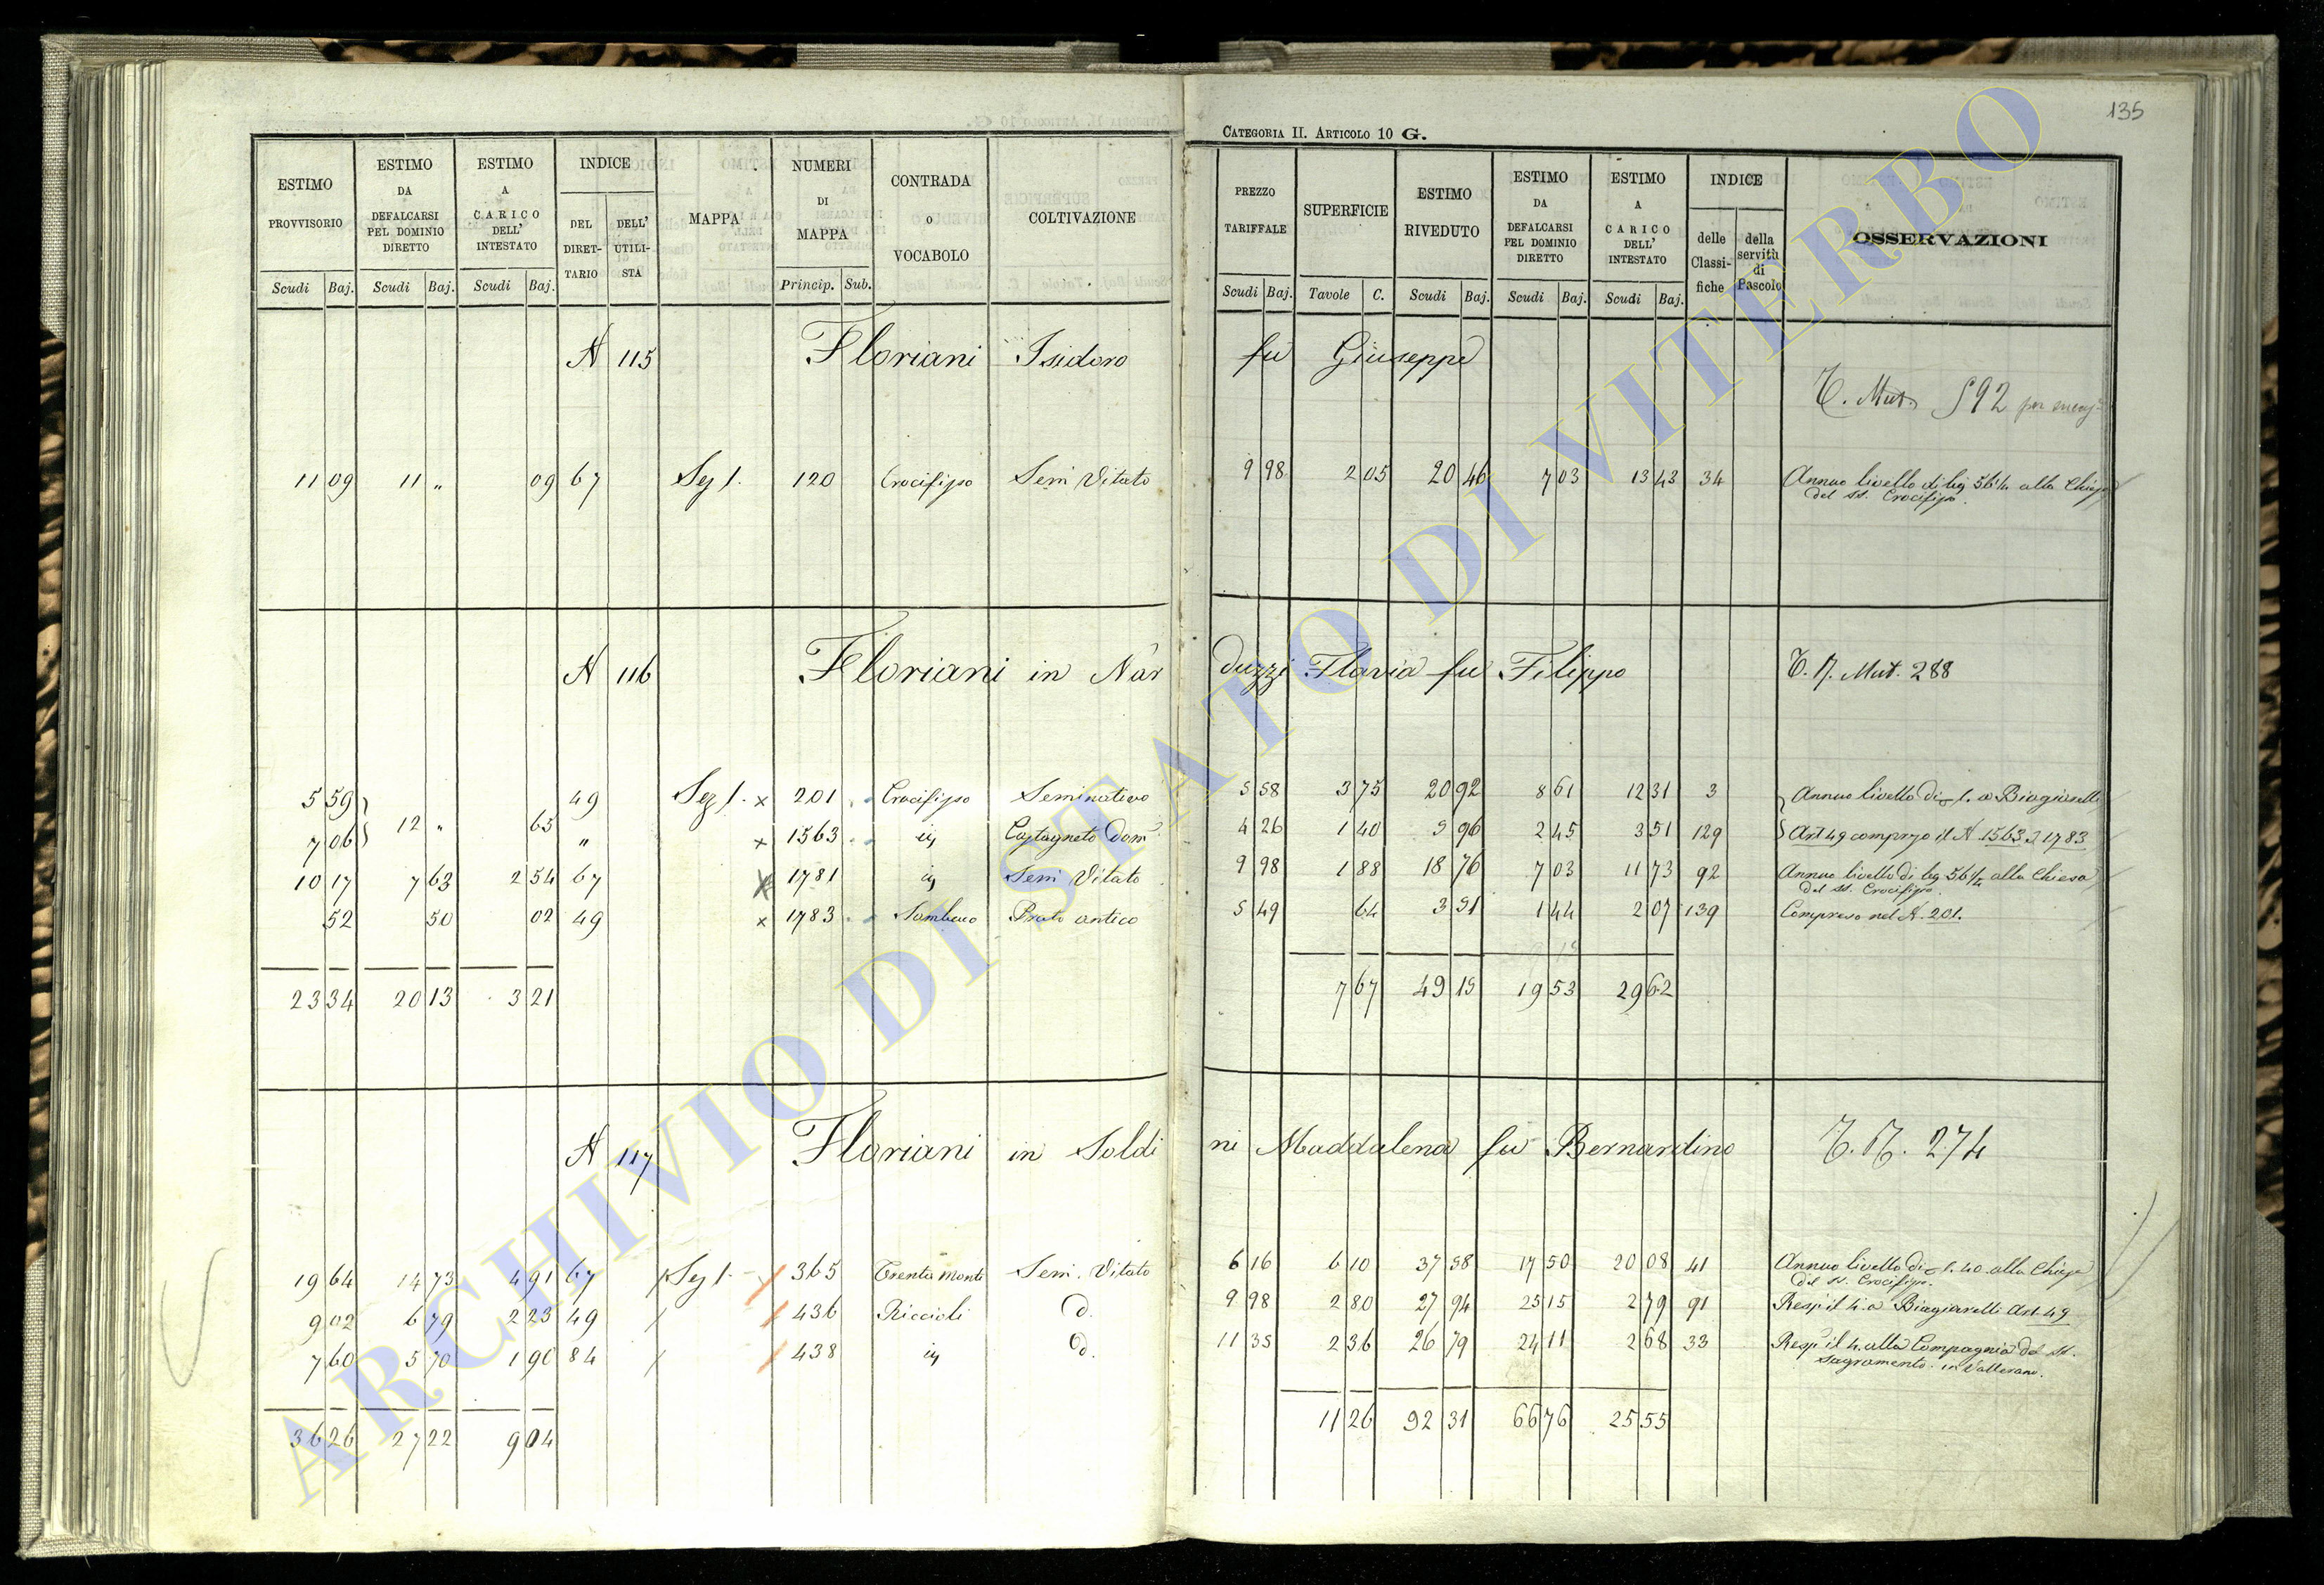 135
CATEGORIA II. ARTICOLO 10 G.
ESTIMO PROVVISORIO Scudi Baj. | ESTIMO DA DEFALCARSI PEL DOMINIO DIRETTO Scudi Baj. | ESTIMO A CARICO DELL' INTESTATO Scudi Baj. | INDICE DEL DIRETTARIO | DELL' UTILISTA | MAPPA | NUMERI DI MAPPA Princip. Sub. | CONTRADA o VOCABOLO | COLTIVAZIONE
PREZZO TARIFFALE Scudi Baj. | SUPERFICIE Tavole C. | ESTIMO RIVEDUTO Scudi Baj. | ESTIMO DA DEFALCARSI PEL DOMINIO DIRETTO Scudi Baj. | ESTIMO A CARICO DELL' INTESTATO Scudi Baj. | INDICE delle Classifiche | della servitù di Pascolo | OSSERVAZIONI
N 115 Floriani Isidoro fu Giuseppe
T. Mut. 592
11 09 11 " 09 67 Sez 1. 120 Crocifisso Sem Vitato 9 98 2 05 20 46 7 03 13 43 34 Annuo livello di bj 56¼ alla Chiesa
del SS. Crocifisso.
N 116 Floriani in Nar duzzi Flavia fu Filippo T. N. Mut. 288
5 59 12 " 63 49 Sez 1. x 201 Crocifisso Seminativo 5 58 3 75 20 92 8 61 12 31 3 Annuo livello di 1. a Biagiarelli
7 06 " x 1563 Castagneto Dom 4 26 1 40 5 96 2 45 3 51 129 Art 49 compreso il N 1563 e 1783
10 17 7 63 2 54 67 x 1781 Sem Vitato 9 98 1 88 18 76 7 03 11 73 92 Annuo livello di bj 56¼ alla Chiesa
del SS. Crocifisso.
52 50 02 49 x 1783 Sambuco Prato antico 5 49 64 3 51 1 44 2 07 139 Compreso nel N. 201.
23 34 20 13 3 21 7 67 49 15 19 53 29 62
N 117 Floriani in Soldi ni Maddalena fu Bernardino T. N. 274
19 64 14 73 4 91 67 Sez 1. 365 Trenta Monti Sem. Vitato 6 16 6 10 37 58 17 50 20 08 41 Annuo livello di 1. 40 alla Chiesa
del SS. Crocifisso.
9 02 6 79 2 23 49 436 Riccioli d. 9 98 2 80 27 94 25 15 2 79 91 Resp. il 4. a Biagiarelli Art. 49
7 60 5 70 1 90 84 438 d. 11 35 2 36 26 79 24 11 2 68 33 Resp. il 4. alla Compagnia del SS.
Sagramento in Vallerano.
36 26 27 22 9 04 11 26 92 31 66 76 25 55
ARCHIVIO DI STATO DI VITERBO